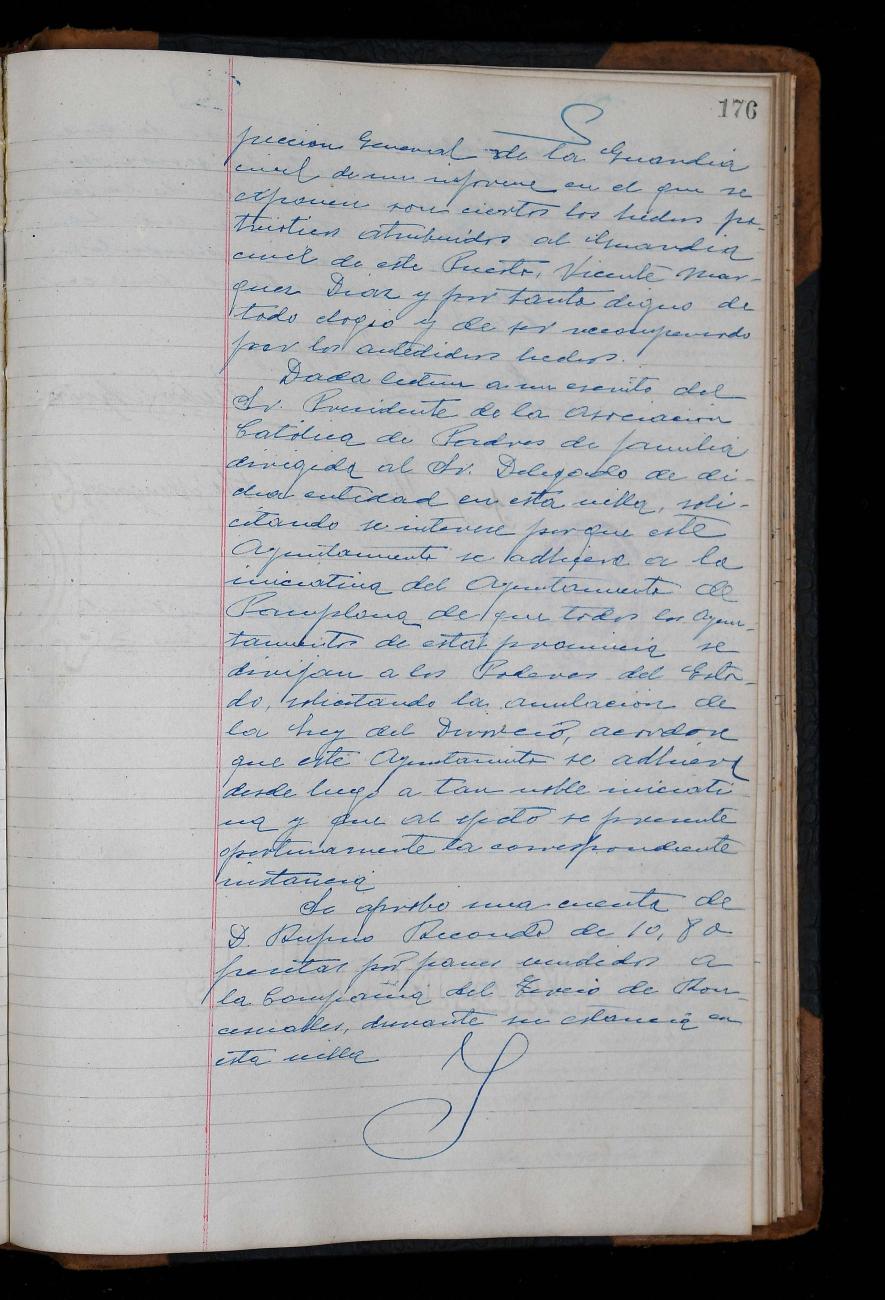 176
peccion General de la Guardia
civil de un informe en el que se
exponen son ciertos los hechos pa-
trioticos atribuidos al Guardia
civil de este Puesto, Vicente Mar-
quez Diaz y por tanto digno de
todo elogio y de ser recompensado
por los antedichos hechos.
Dada lectura a un escrito del
Sr. Presidente de la Asociacion
Católica de Padres de familia
dirigida al Sr. Delegado de di-
cha entidad en esta villa, soli-
citando se interese porque este
Ayuntamiento se adhiera a la
iniciativa del Ayuntamiento de
Pamplona de que todos los Ayun-
tamientos de esta provincia se
dirijan a los Poderes del Esta-
do, solicitando la anulacion de
la Ley del Divorcio, acordose
que este Ayuntamiento se adhiera
desde luego a tan noble iniciati-
va y que al efecto se presente
oportunamente la correspondiente
instancia
Se aprobo una cuenta de
D. Rufino Recondo de 10,80
pesetas por panes vendidos a
la Compañia del Tercio de Ron-
cesvalles, durante su estancia en
esta villa